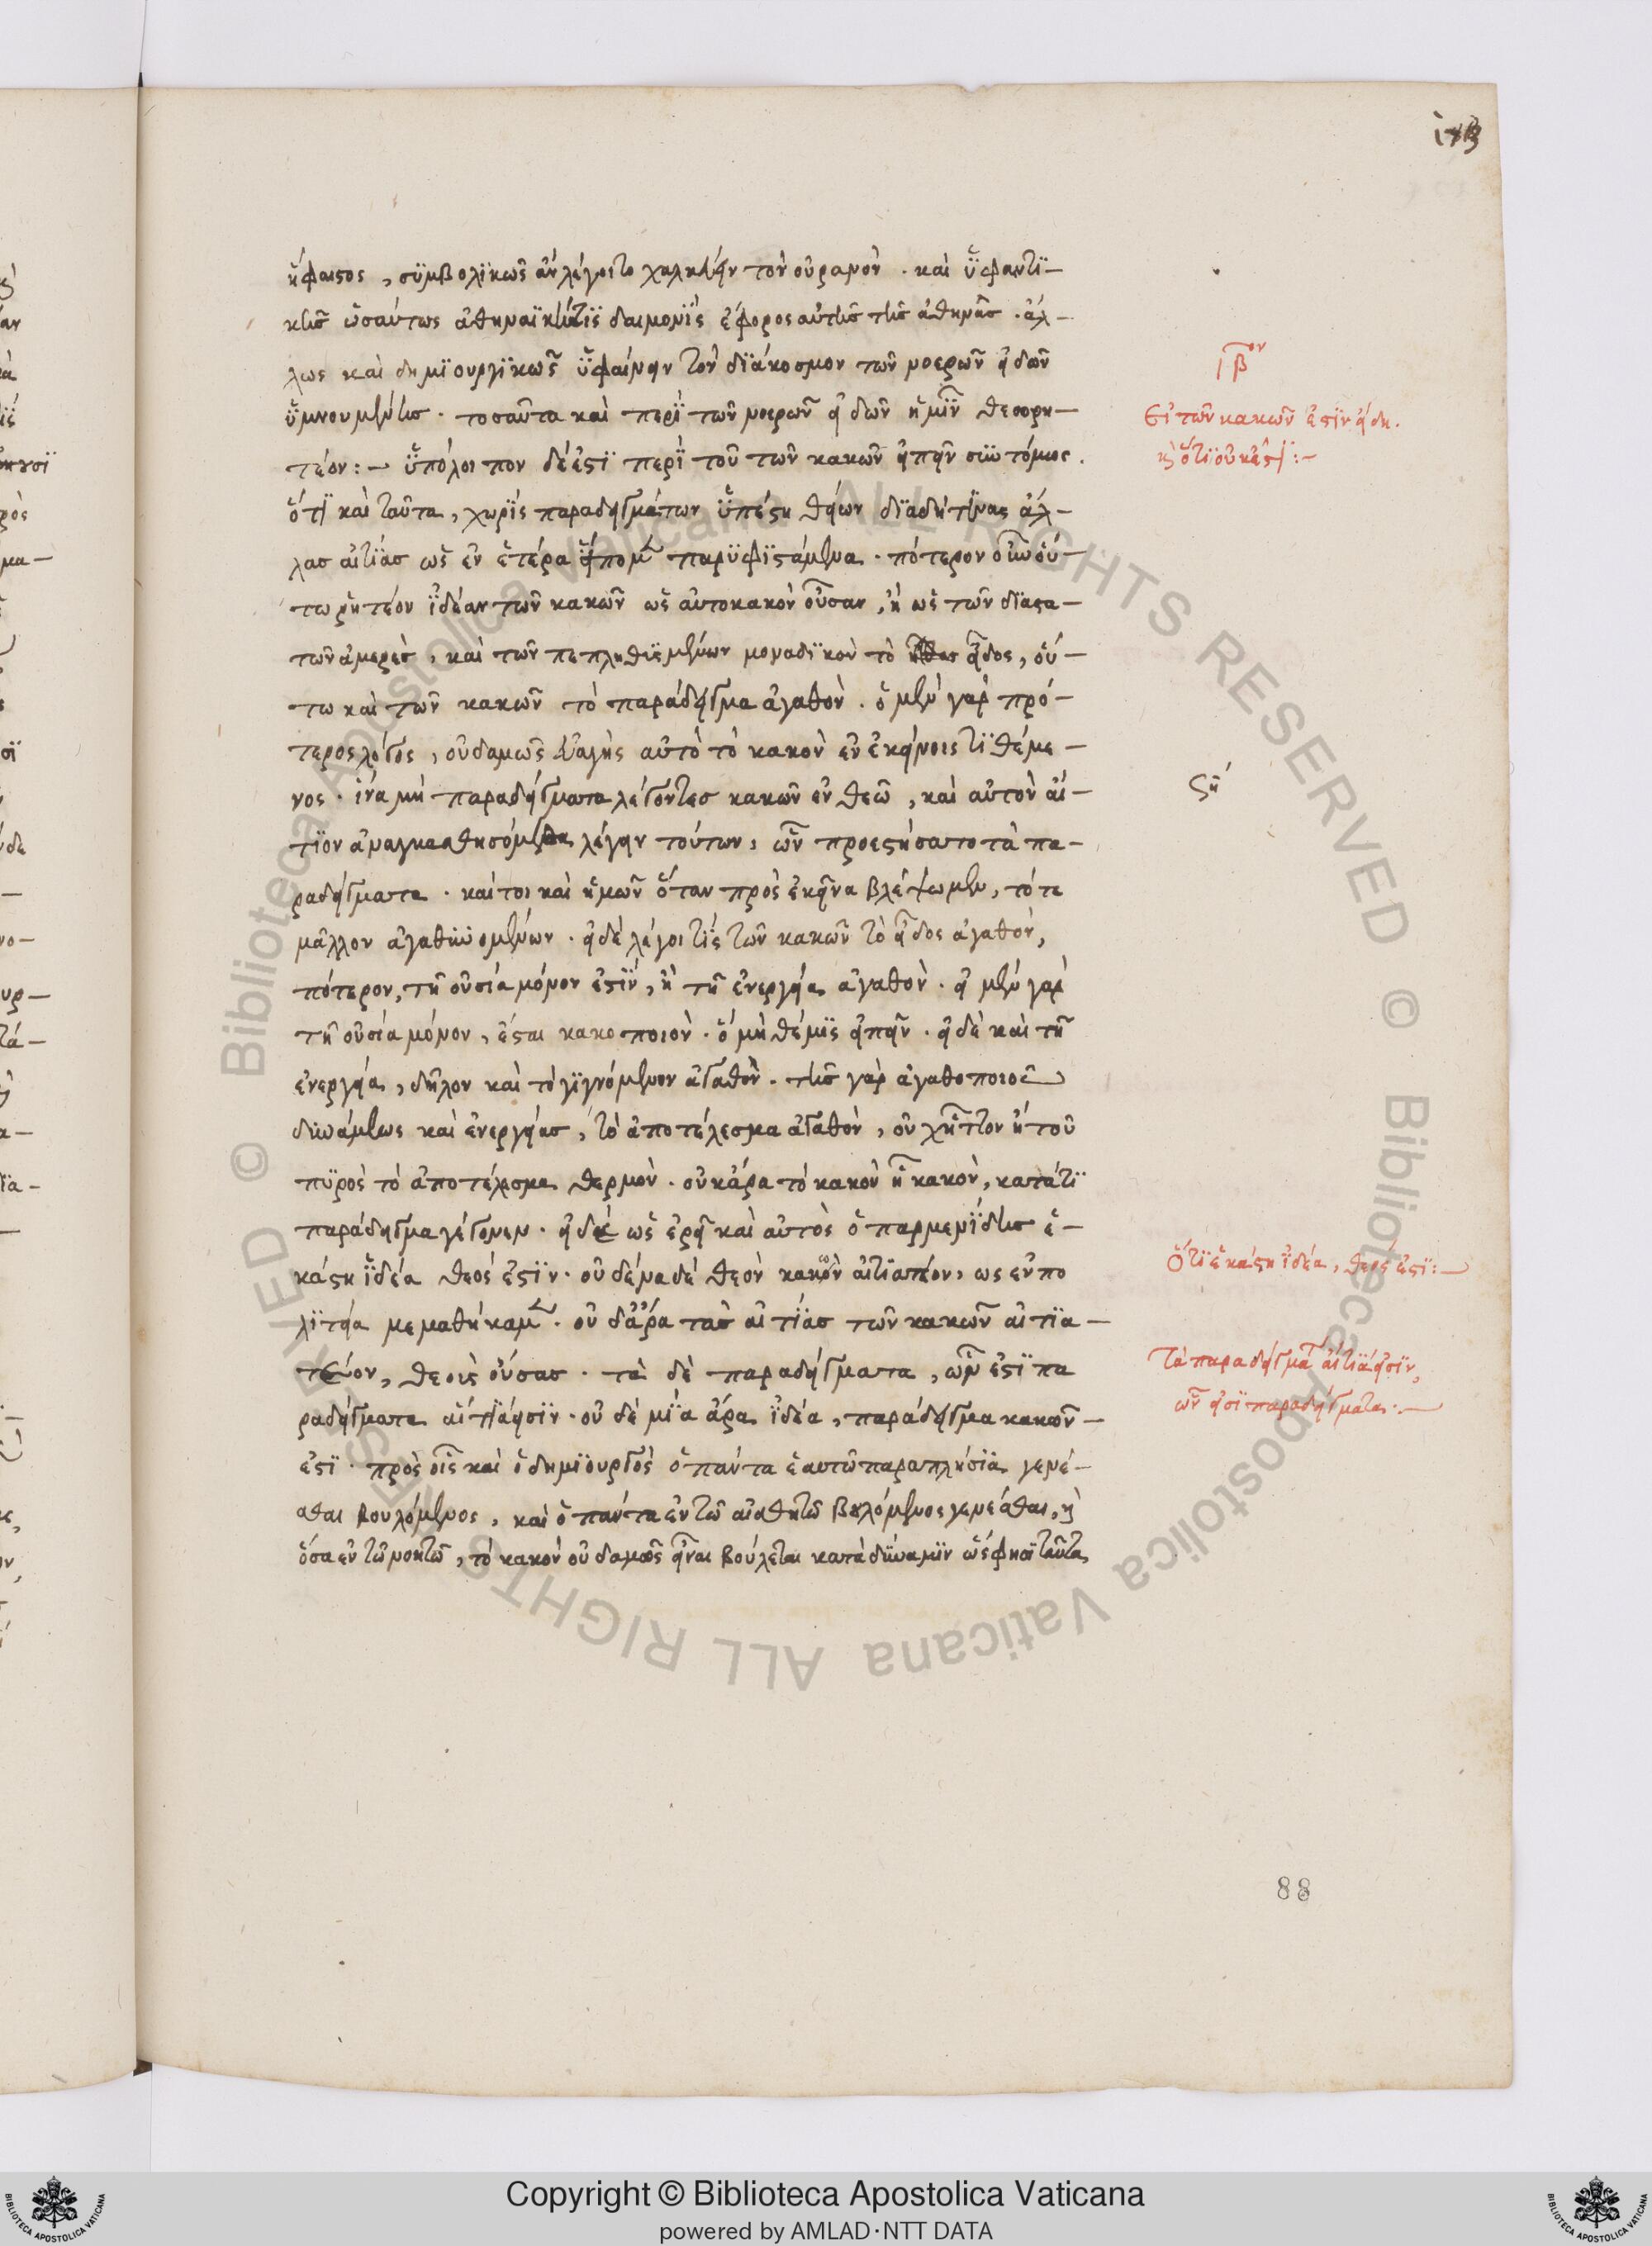 ιβ
ἥφαιστος, συμβολικῶς ἂν λέγοιτο χαλκεύειν τὸν οὐρανὸν . καὶ ὑφαντι-
κῆς ὡσαύτως ἀθηναϊκή τις δαιμονὶς ἔφορος αὐτῆς τῆς ἀθηνᾶς . ἄλ-
λως καὶ δημιουργικῶς ὑφαίνειν τὸν διάκοσμον τῶν νοερῶν εἰδῶν
ὑμνουμένης . τοσαῦτα καὶ περὶ τῶν νοερῶν εἰδῶν ἡμῖν θεωρη-
τέον :- ὑπόλοιπον δέ ἐστι περὶ τοῦ τῶν κακῶν εἰπεῖν συντόμως .
ὅτι καὶ ταῦτα, χωρὶς παραδειγμάτων ὑπέστη θείων διαδή τινας ἄλ-
λας αἰτίας ὡς ἐν ἑτέρα εἴπομεν παρυφιστάμενα . πότερον οὖν οὕ-
τω ῥητέον ἰδέαν τῶν κακῶν ὡς αὐτοκακὸν οὖσαν, ἢ ὡς τῶν διαστα-
τῶν ἀμερὲς, καὶ τῶν πεπληθυσμένων μοναδικὸν τὸ εἶδος, οὕ-
τω καὶ τῶν κακῶν τὸ παράδειγμα ἀγαθὸν . ὁ μὲν γὰρ πρό-
τερος λόγος, οὐδαμῶς εὐαγὴς αὐτὸ τὸ κακὸν ἐν ἐκείνοις τιθέμε-
νος . ἵνα μὴ παραδείγματα λέγοντες κακῶν ἐν θεῶ, καὶ αὐτὸν αἴ-
τιον ἀναγκασθησόμεθα λέγειν τούτων, ὧν προεστήσατο τὰ πα-
ραδείγματα . καίτοι καὶ ἡμῶν ὅταν πρὸς ἐκεῖνα βλέψωμεν, τότε
μᾶλλον ἀγαθυνομένων . εἰ δὲ λέγοι τίς τῶν κακῶν τὸ εἶδος ἀγαθόν,
πότερον, τῆ οὐσία μόνον ἐστίν, ἢ τῆ ἐνεργεία ἀγαθὸν . εἰ μὲν γὰρ
τῆ οὐσία μόνον, ἔσται κακοποιὸν . ὃ μὴ θέμις εἰπεῖν . εἰ δὲ καὶ τῆ
ἐνεργεία, δῆλον καὶ τὸ γιγνόμενον ἀγαθὸν . τῆς γὰρ ἀγαθοποιοῦ
δυνάμεως καὶ ἐνεργείας, τὸ ἀποτέλεσμα ἀγαθὸν, οὐχ ἧττον ἢ τοῦ
πυρὸς τὸ ἀποτέλεσμα θερμὸν . οὐκ ἄρα τὸ κακὸν ἧ κακὸν, κατά τι
παράδειγμα γέγονεν . εἰ δὲ ὡς ἐρεῖ καὶ αὐτὸς ὁ παρμενίδης ἑ-
κάστη ἰδέα θεός ἐστιν . οὐδένα δὲ θεὸν κακῶν αἰτιατέον, ὡς ἐν πο
λιτεία μεμαθήκαμεν . οὐδ' ἄρα τὰς αἰτίας τῶν κακῶν αἰτια-
τέον, θεοὺς οὔσας . τὰ δὲ παραδείγματα, ὧν ἐστι πα
ραδείγματα αἴτιά εἰσιν . οὐδὲ μία ἄρα ἰδέα, παράδειγμα κακῶν-
ἐστι . πρὸς οἷς καὶ ὁ δημιουργὸς ὁ πάντα ἑαυτῶ παραπλήσια γενέ-
σθαι βουλόμενος, καὶ ὁ πάντα ἐν τῶ αἰσθητῶ βουλόμενος γενέσθαι, καὶ
ὅσα ἐν τῶ νοητῶ, τὸ κακὸν οὐδαμῶς εἶναι βούλεται κατὰ δύναμιν ὡς ἔφησε ταῦτα
ιβον
Εἰ τῶν κακῶν ἐστὶν εἴδη .
καὶ ὅτι οὐκ ἔστι :-
ση
Ὅτι ἑκάστη ἰδέα, θεός ἐστι :-
Τὰ παραδείγματα αἴτιά εἰσιν,
ὧν εἰσι παραδείγματα :-
88
© Biblioteca Apostolica Vaticana ALL RIGHTS RESERVED © Biblioteca Apostolica Vaticana ALL RIGHTS RESERVED
Copyright © Biblioteca Apostolica Vaticana
powered by AMLAD·NTT DATA
BIBLIOTECA APOSTOLICA VATICANA
BIBLIOTECA APOSTOLICA VATICANA